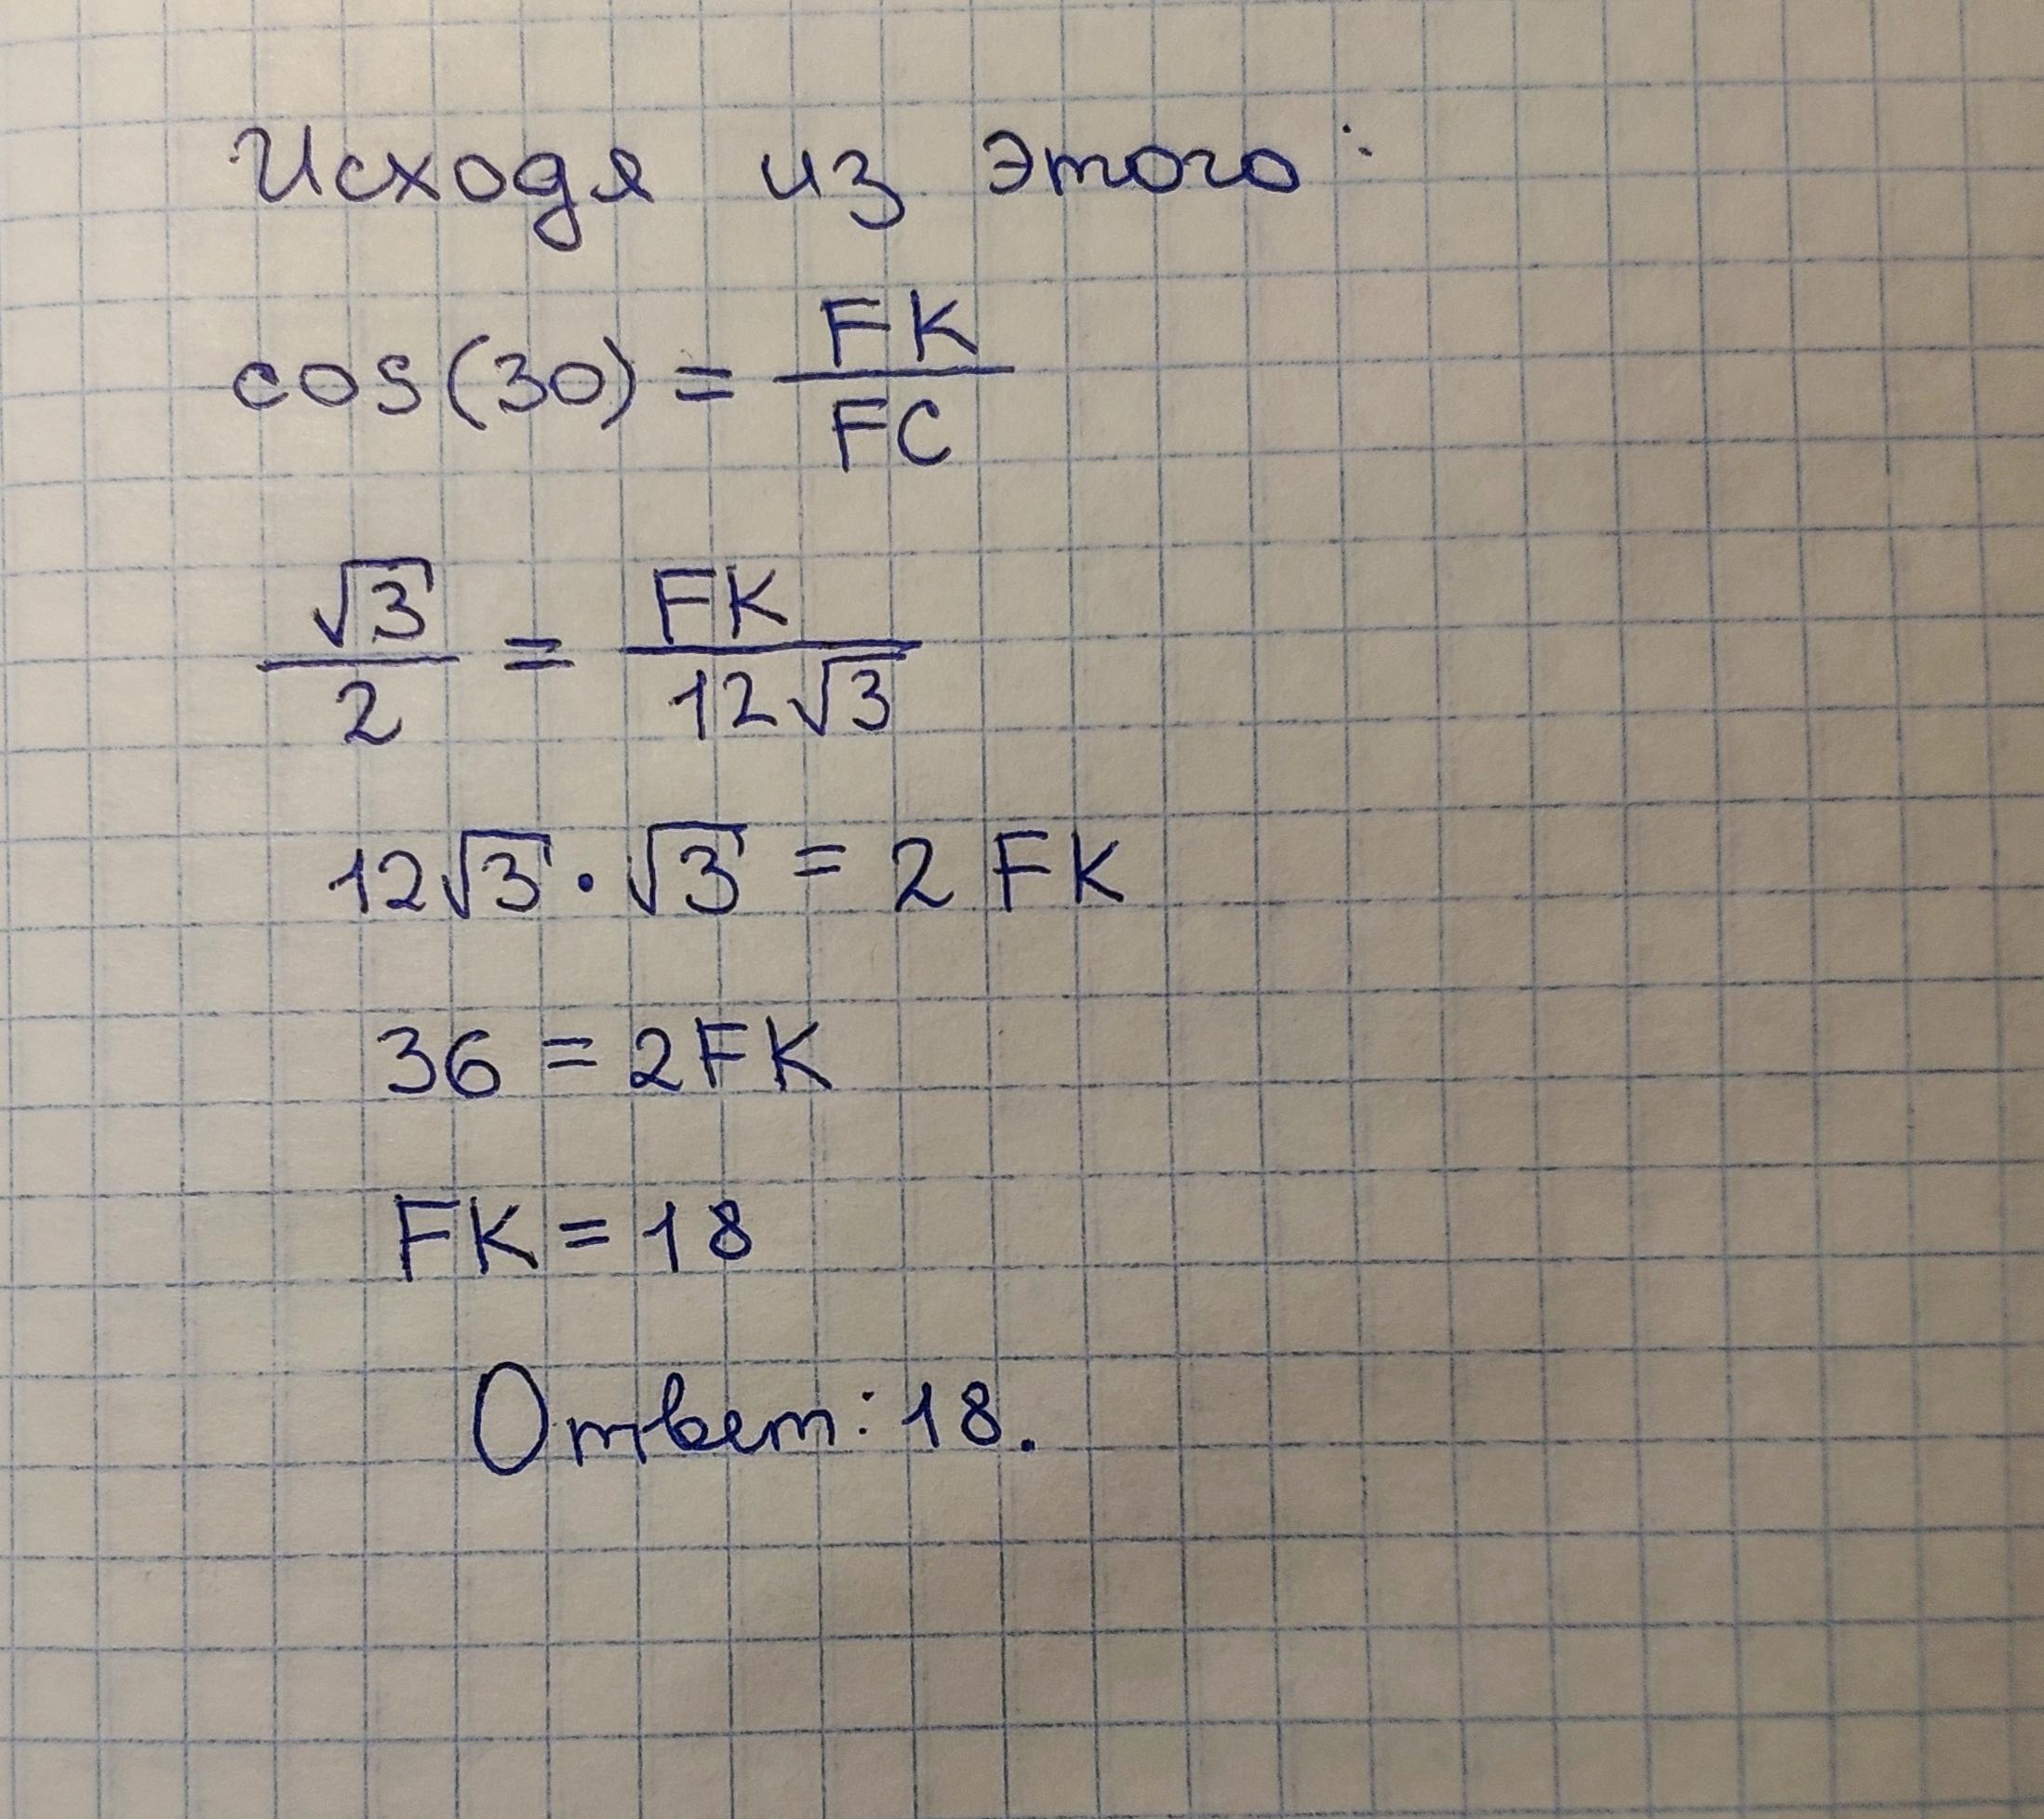 Исходя из этого:
cos(30) = FK/FC
√3/2 = FK/12√3
12√3 · √3 = 2 FK
36 = 2FK
FK = 18
Ответ: 18.